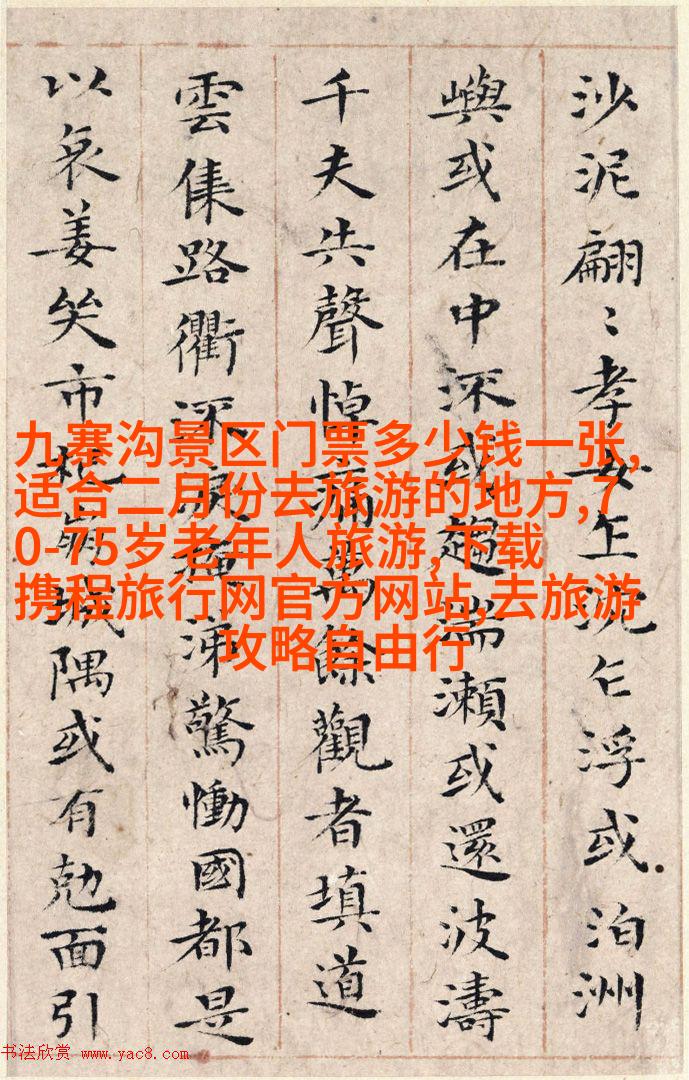 沙泥翩〻孝女乍沉乍浮或泊洲
嶼或在中深或趨湍瀨或還波濤
千夫共聲悼痛萬餘觀者填道
雲集路衢涕驚慟國都是
以哀姜哭市杞崩城隅或有尅面引
九寨沟景区门票多少钱一张,
适合二月份去旅游的地方,7
0-75岁老年人旅游,下载
携程旅行网官方网站,去旅游
攻略自由行
书法欣赏 www.yac8.com